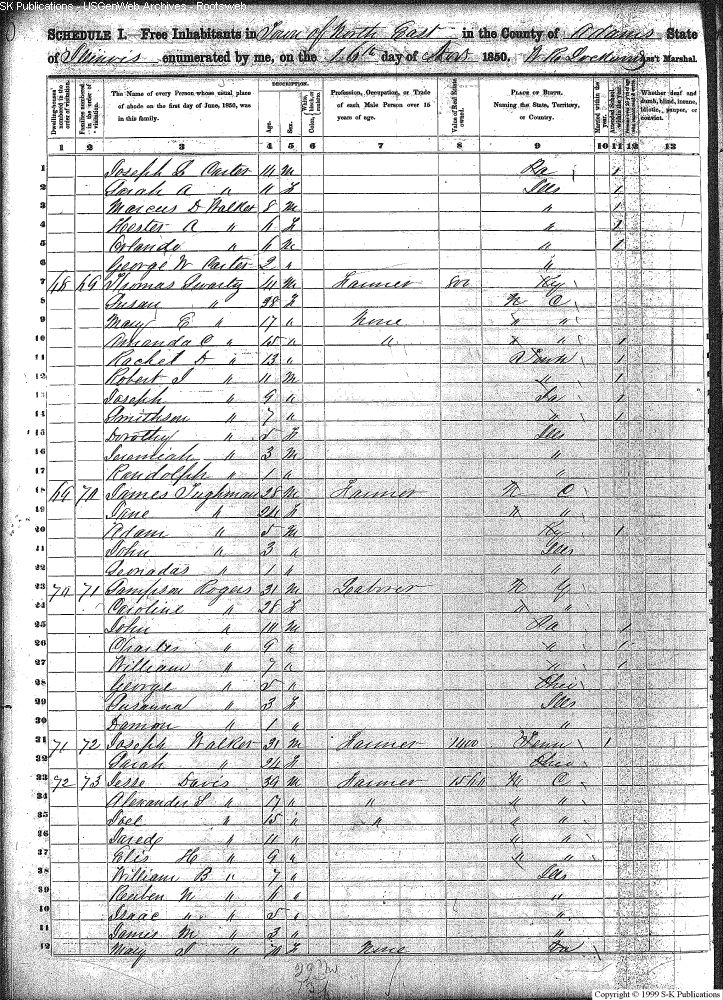 SK Publications - USGenWeb Archives - Rootsweb
SCHEDULE I. Free Inhabitants in Town of North East in the County of Adams State
of Illinois enumerated by me, on the 16th day of Novr 1850. Ass't Marshal.
Dwelling-houses numbered in the order of visitation.
Families numbered in the order of visitation.
The Name of every Person whose usual place of abode on the first day of June, 1850, was in this family.
DESCRIPTION.
Age.
Sex.
White, black, or mulatto.
Color,
Profession, Occupation, or Trade of each Male Person over 15 years of age.
Value of Real Estate owned.
PLACE OF BIRTH. Naming the State, Territory, or Country.
Married within the year.
Attended School within the year.
Whether deaf and dumb, blind, insane, idiotic, pauper, or convict.
1 2 3 4 5 6 7 8 9 10 11 12 13
1 Joseph L Carter 14 m 1
2 Sarah A " 11 f Ills 1
3 Marcus D Walker 8 m " 1
4 Hester A " 6 f " 1
5 Orlando " 6 m " 1
6 George W Carter 2 " "
7 68 69 Thomas Swartz 41 m Farmer 800 Ky
8 Susan " 38 f N C
9 Mary E " 17 " None " "
10 Amanda C " 15 " " " " 1
11 Rachel D " 13 " Tenn 1
12 Robert J " 11 m " 1
13 Joseph " 9 " 1
14 Smithson " 7 " " 1
15 Dorothy " 5 f Ills
16 Jeremiah " 3 m "
17 Randolph " 1 " "
18 69 70 James Tughman 28 m Farmer N C
19 Jane " 24 f " "
20 Adam " 5 m Ky 1
21 John " 3 " Ills
22 Leonadas " 1 " "
23 70 71 Sampson Rogers 31 m Laborer N Y
24 Caroline " 28 f " "
25 John " m 1
26 Charles " 9 " " 1
27 William " 7 " " 1
28 George " 5 " Ohio
29 Susanna " 3 f Ills
30 Damon " 1 " "
31 71 72 Joseph Walker 31 m Farmer 1400 Tenn 1
32 Sarah " 24 f Ohio
33 72 73 Jesse Davis 39 m Farmer 1560 N C
34 Alexander S " 17 " " " "
35 Joel " 15 " " " "
36 Jared " 11 " " "
37 Elis H " 9 " " "
38 William B " 7 " Ills
39 Reuben N " 6 " "
40 Isaac " " 5 " "
41 James M " 3 " "
42 Mary J " f None
Copyright © 1999 S-K Publications